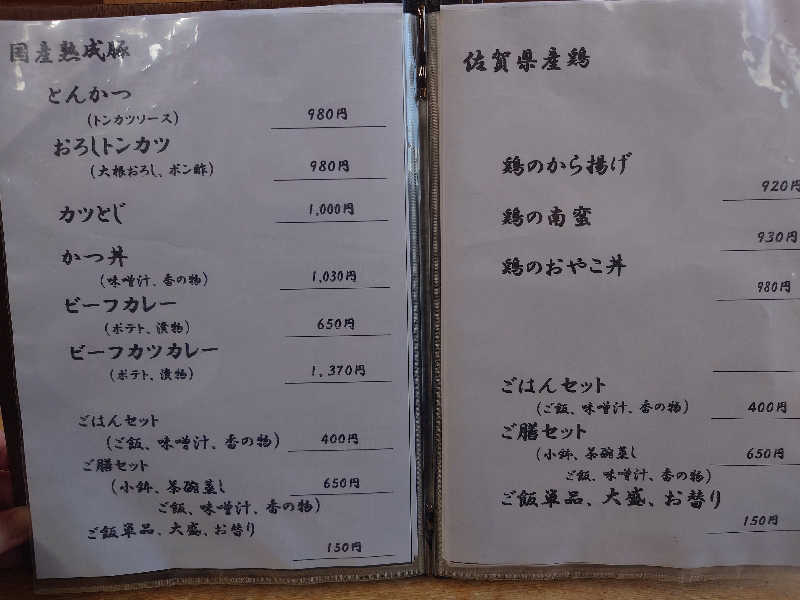 国産熟成豚
とんかつ
(トンカツソース)
980円
おろしトンカツ
(大根おろし、ポン酢)
980円
カツとじ
1,000円
かつ丼
(味噌汁、香の物)
1,030円
ビーフカレー
(ポテト、漬物)
650円
ビーフカツカレー
(ポテト、漬物)
1,370円
ごはんセット
(ご飯、味噌汁、香の物)
400円
ご膳セット
(小鉢、茶碗蒸し
650円
ご飯、味噌汁、香の物)
ご飯単品、大盛、お替り
150円
佐賀県産鶏
鶏のから揚げ
920円
鶏の南蛮
930円
鶏のおやこ丼
980円
ごはんセット
(ご飯、味噌汁、香の物)
400円
ご膳セット
(小鉢、茶碗蒸し
650円
ご飯、味噌汁、香の物)
ご飯単品、大盛、お替り
150円